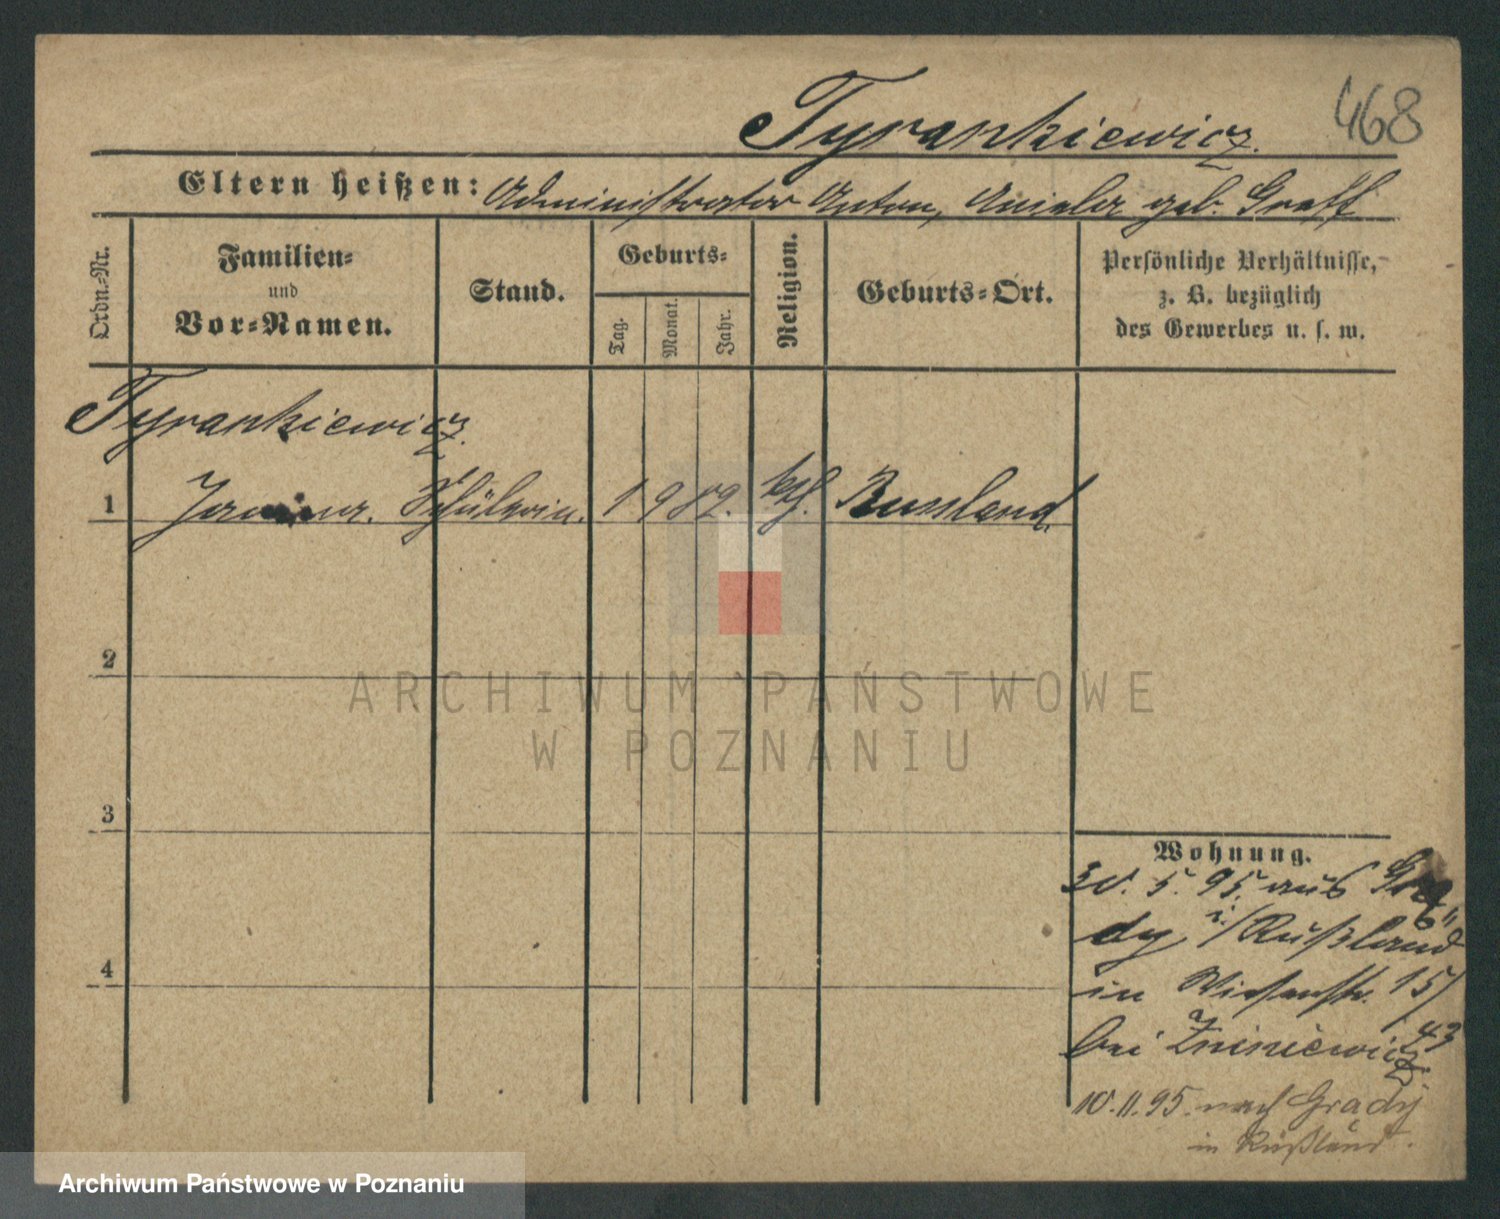 468
Tyrankiewicz.
Eltern heißen: Administrator Anton, Aniela geb. Graff
Ordn.-Nr.
Familien-
und
Vor-Namen.
Stand.
Geburts-
Tag.
Monat.
Jahr.
Religion.
Geburts-Ort.
Persönliche Verhältnisse,
z. B. bezüglich
des Gewerbes u. s. w.
Tyrankiewicz.
1 Schülerin. 1 9 82. kth. Russland
2
ARCHIWUM PAŃSTWOWE
W POZNANIU
3
4
Wohnung.
30. 5. 95. aus
dy i./Rußland
in Wiesenstr. 15/
43
bei Zniniewicz.
10.11.95. nach Grady
in Rußland.
Archiwum Państwowe w Poznaniu